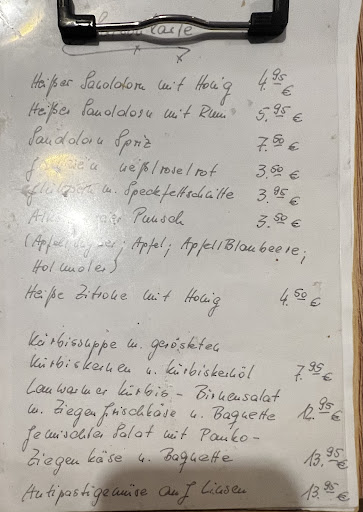 Heißer Sanddorn mit Honig 4.95 €
Heißer Sanddorn mit Rum 5.95 €
Sanddorn Spriz 7.50 €
weiß/rosé/rot 3.50 €
m. Speckfettschnitte 3.95 €
Punsch 3.50 €
Apfel; Apfel/Blaubeere;
Holunder)
Heiße Zitrone mit Honig 4.50 €
Kürbissuppe m. gerösteten
Kürbiskernen u. Kürbiskernöl 7.95 €
Lauwarmer Kürbis-Birnensalat
m. Ziegenfrischkäse u. Baguette 12.95 €
Gemischter Salat mit Panko-
Ziegenkäse u. Baguette 13.95 €
Antipastigemüse auf Linsen 13.95 €